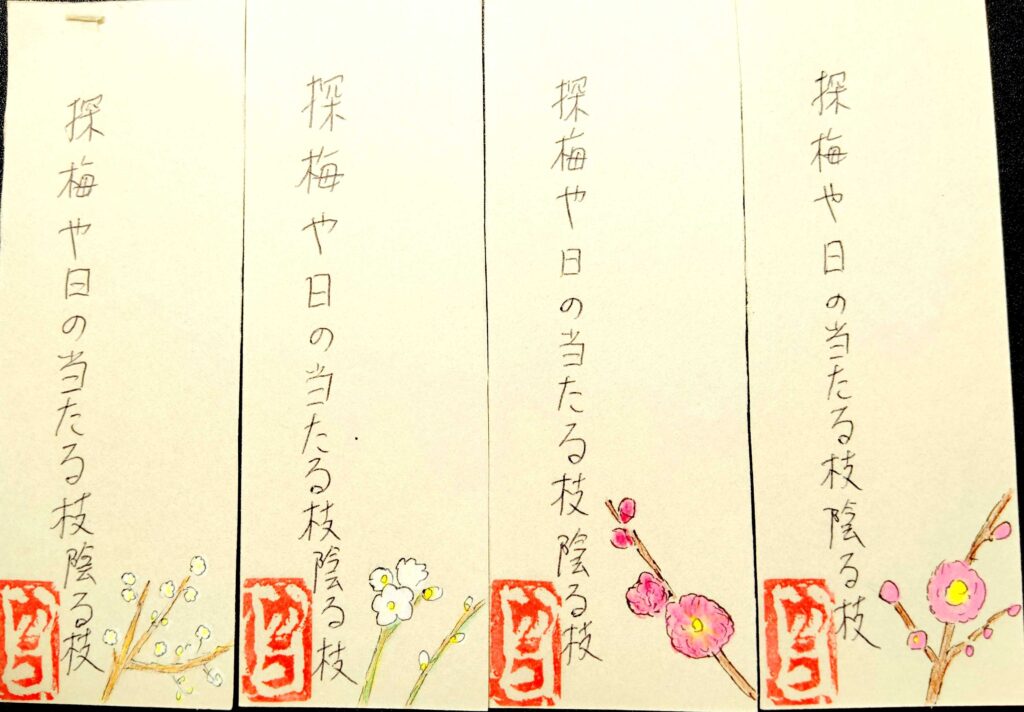 探梅や日の当たる枝陰る枝
探梅や日の当たる枝陰る枝
探梅や日の当たる枝陰る枝
探梅や日の当たる枝陰る枝